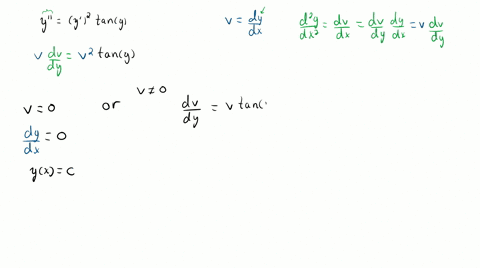 y'' = (y')² tan(y)
v = dy/dx
d²y/dx² = dv/dx = dv/dy dy/dx = v dv/dy
v dv/dy = v² tan(y)
v = 0 or v ≠ 0 dv/dy = v tan(
dy/dx = 0
y(x) = c